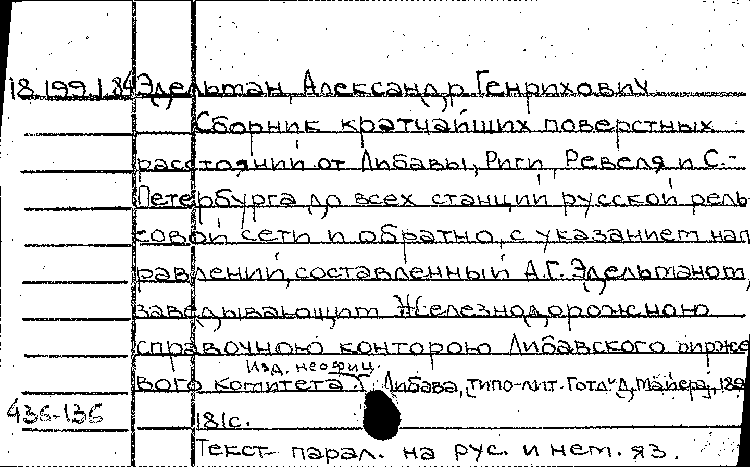 18.199.1.84 Эдельман, Александр Генрихович
Сборник кратчайших поверстных
расстояний от Либавы, Риги, Ревеля и С.-
Петербурга до всех станций русской рель-
совой сети и обратно, с указанием нап
равлений, составленный А.Г. Эдельманом,
заведывающим Железнодорожною
справочною конторою Либавского бирже
Изд. неофиц.
вого комитета. Либава, типо-лит. Готл. Д. Мейера, 189
436-136 181с.
Текст парал. на рус. и нем. яз.